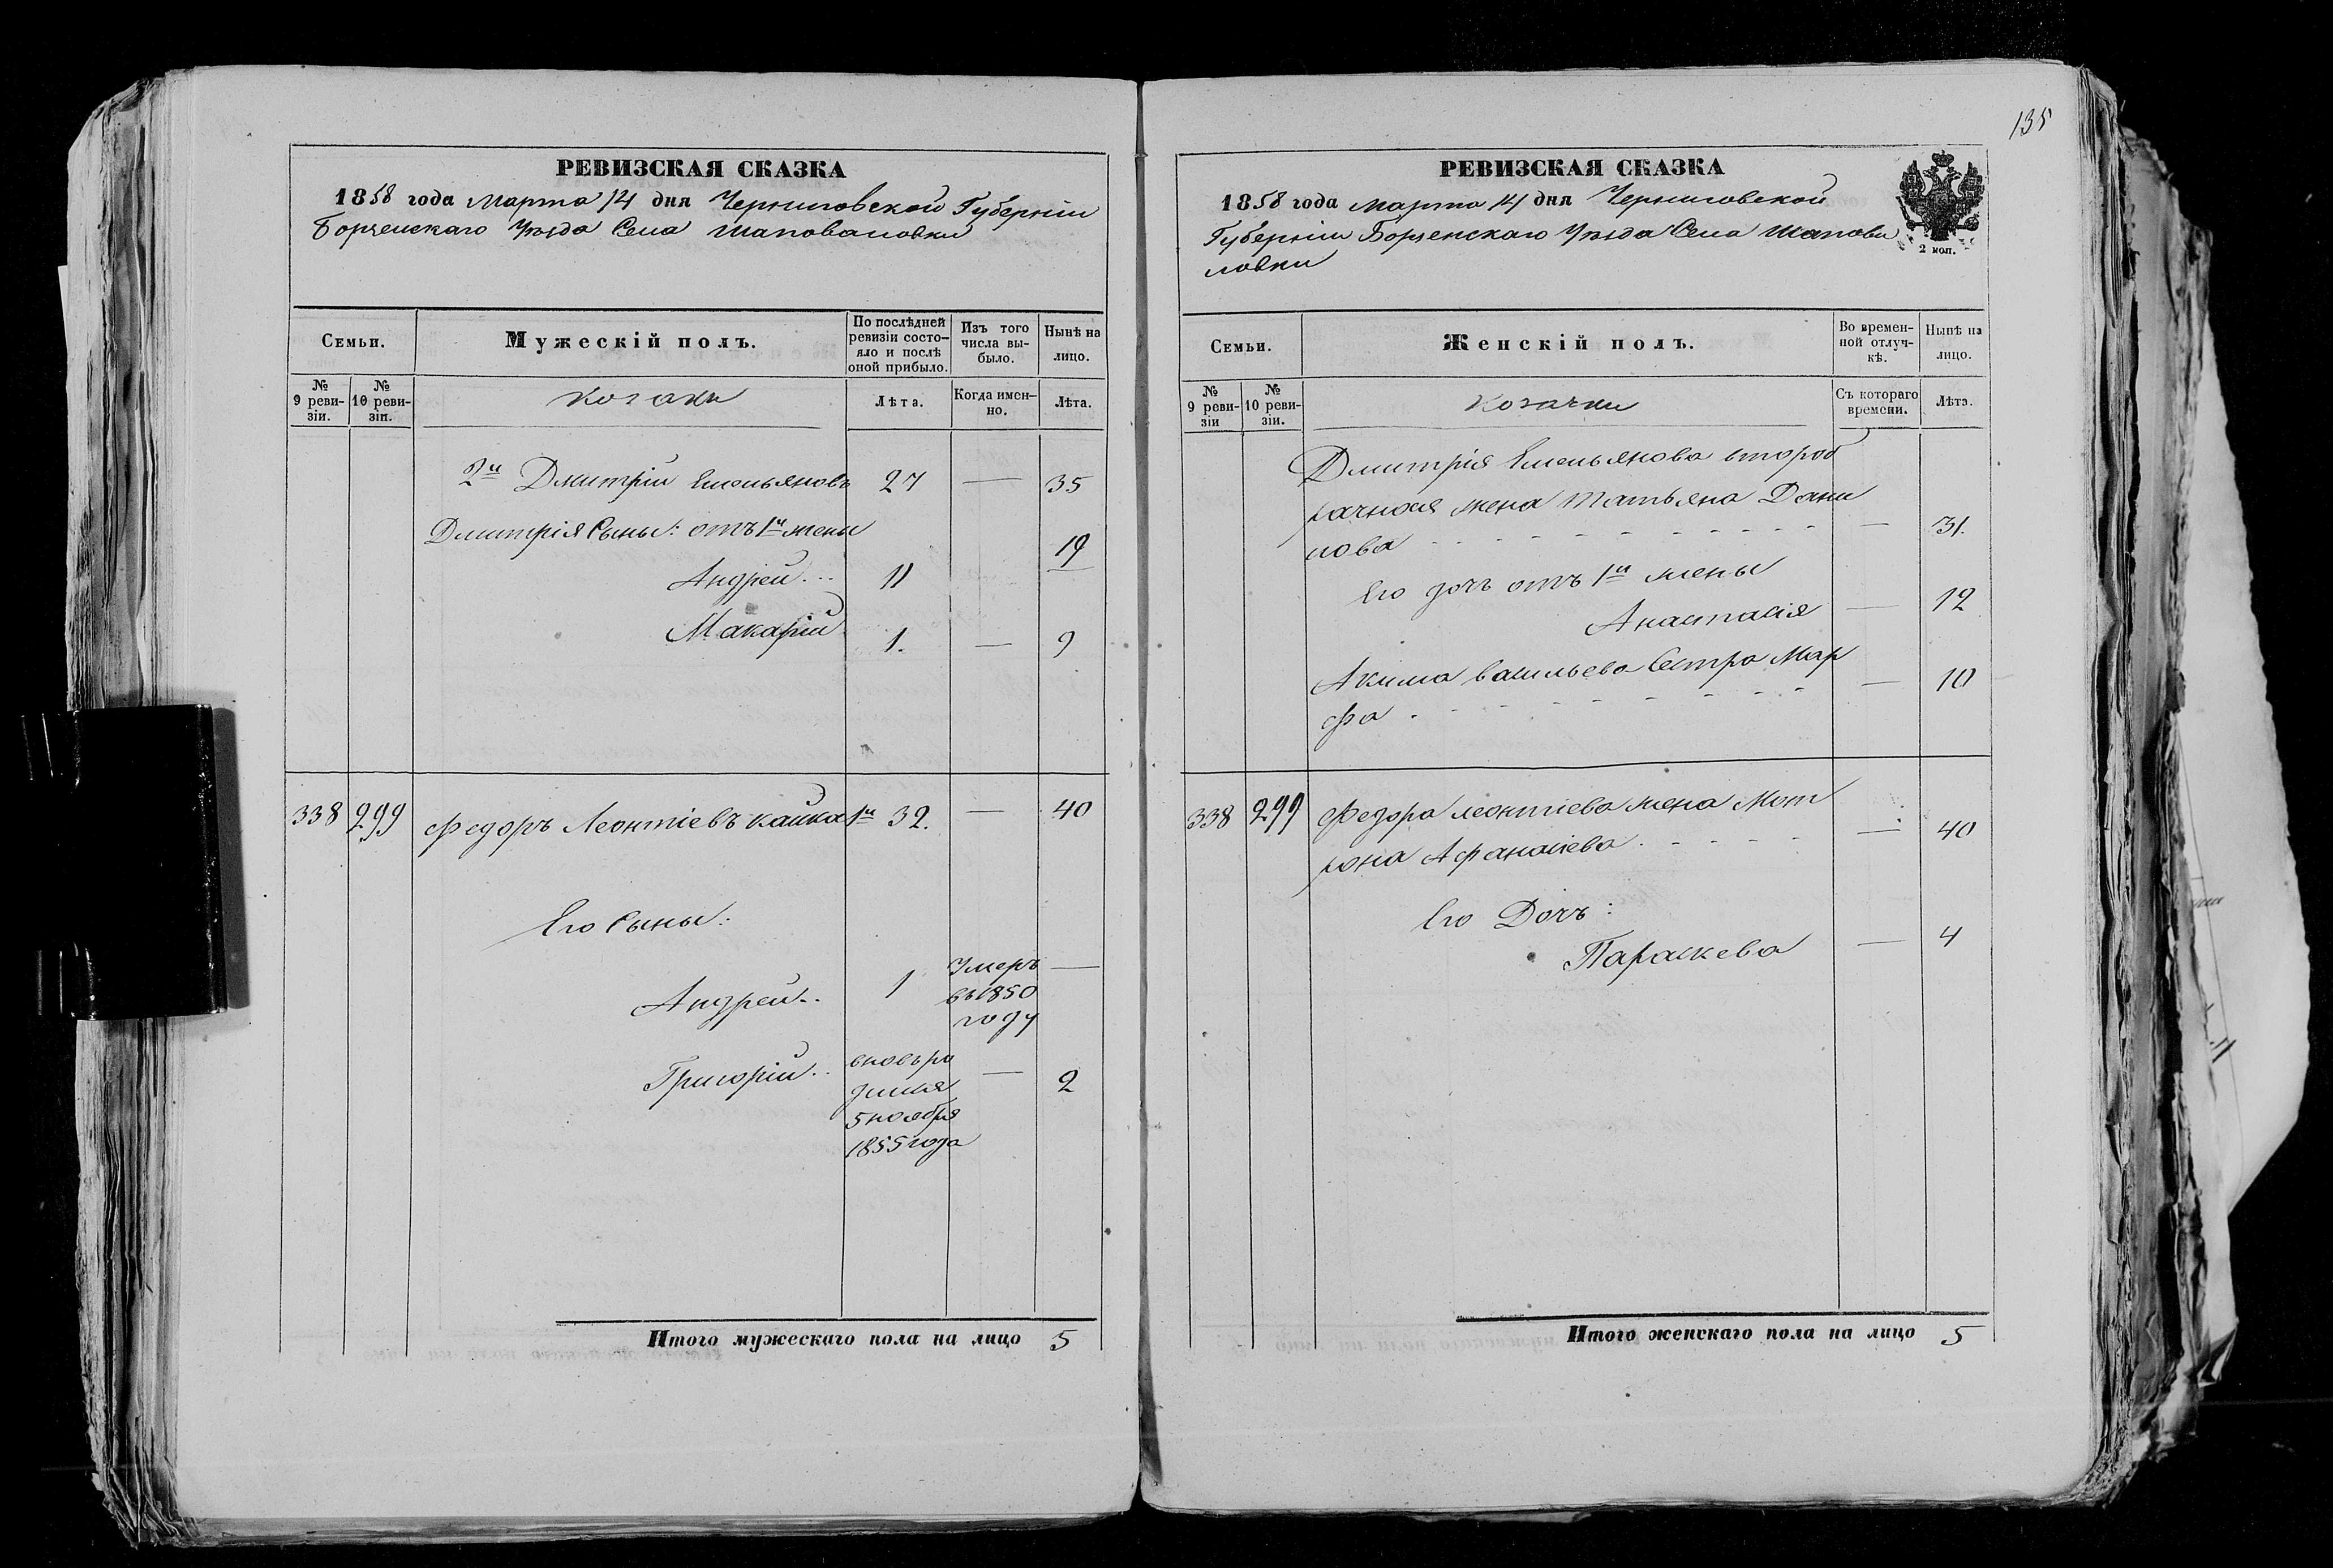 РЕВИЗСКАЯ СКАЗКА
1858 года Марта 14 дня Черниговской Губерніи
Борзенскаго Уѣзда Села Шаповаловки
Семьи.
Мужескій полъ.
По послѣдней ревизіи состояло и послѣ оной прибыло.
Изъ того числа выбыло.
Нынѣ на лицо.
№ 9 ревизіи.
№ 10 ревизіи.
Козаки
Лѣта.
Когда именно.
Лѣта.
2й Дмитрій Емельяновъ 27 — 35
Дмитрія Сыны: отъ 1й жены
Андрей... 11 19
Макарій 1. — 9
338 299 Федоръ Леонтіевъ Кашка 1й 32. — 40
Его Сыны:
Андрей.. 1 Умеръ —
въ 1850
году
Григорій.. вновь ро — 2
дился
5 ноября
1855 года
Итого мужескаго пола на лицо 5
135
РЕВИЗСКАЯ СКАЗКА
1858 года Марта 14 дня Черниговской
Губерніи Борзенскаго Уѣзда Села Шапова
ловки
2 коп.
Семьи.
Женскій полъ.
Во временной отлучкѣ.
Нынѣ на лицо.
№ 9 ревизіи
№ 10 ревизіи.
Козачки
Съ котораго времени.
Лѣта.
Дмитрія Емельянова второб
рачная жена Татьяна Дани
лова — 31.
Его дочь отъ 1й жены
Анастасія — 12
Акима Васильева Сестра Мар — 10
фа
338 299 Федора Леонтіева жена Мот
рона Афанасіева — 40
Его Дочь:
Параскева — 4
Итого женскаго пола на лицо 5